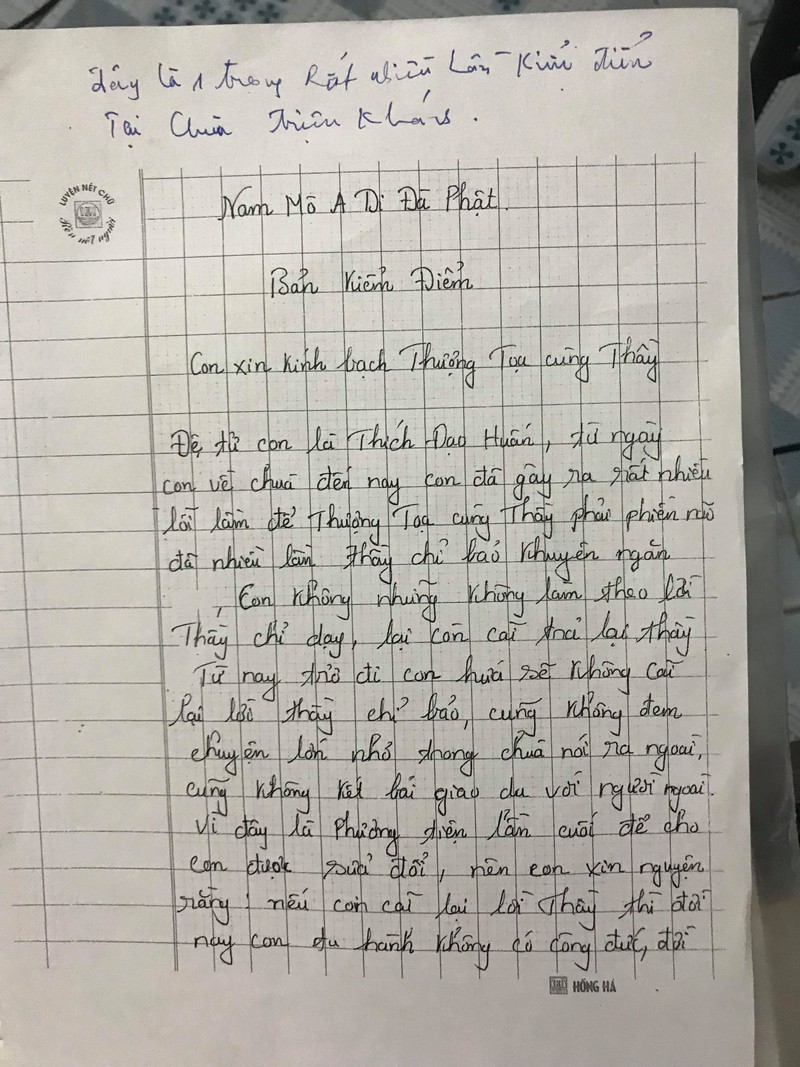 Đây là 1 trong Rất nhiều lần Kiểm điểm
Tại Chùa Triệu Khánh.
LUYỆN NÉT CHỮ
Nam Mô A Di Đà Phật.
Bản Kiểm Điểm
Con xin kính bạch Thượng Toạ cùng Thầy
Đệ tử con là Thích Đạo Huấn, từ ngày
con về chuà đến nay con đã gây ra rất nhiều
lỗi lầm để Thượng Toạ cùng Thầy phải phiền não
đã nhiều lần thầy chỉ bảo khuyên ngăn
Con không nhưng không làm theo lời
Thầy chỉ dạy, lại còn cãi trả lại thầy
Từ nay trở đi con hứa sẽ không cãi
lại lời thầy chỉ bảo, cũng không đem
chuyện lớn nhỏ trong chuà nói ra ngoài,
cũng không kết bái giao du với người ngoài.
Vì đây là phương diện lần cuối để cho
con được sửa đổi, nên con xin nguyện
rằng nếu con cãi lại lời Thầy thì đời
này con tu hành không có công đức, đời
HỒNG HÀ